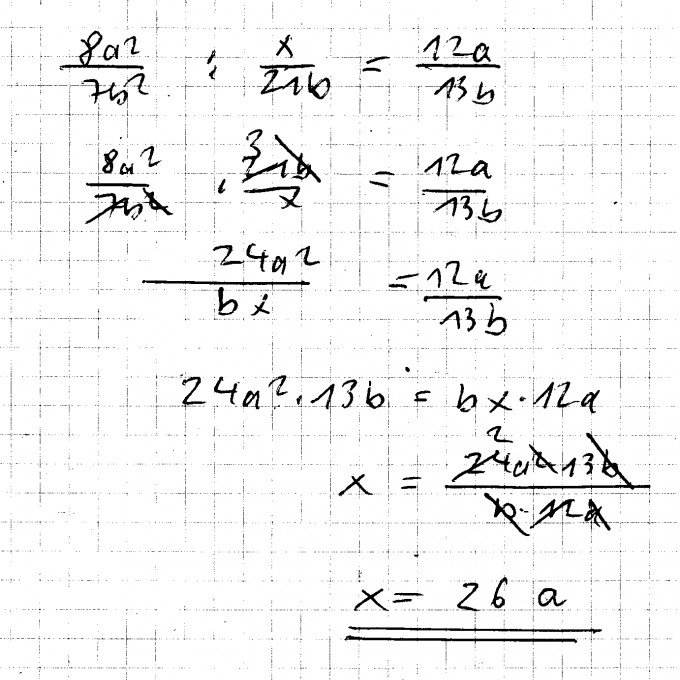 8a²/7b² : x/21b = 12a/13b
8a²/7b² · 3 21b/x = 12a/13b
24a²/bx = 12a/13b
24a²·13b = bx·12a
x = 2 24a²13b/b·12a
x = 26 a